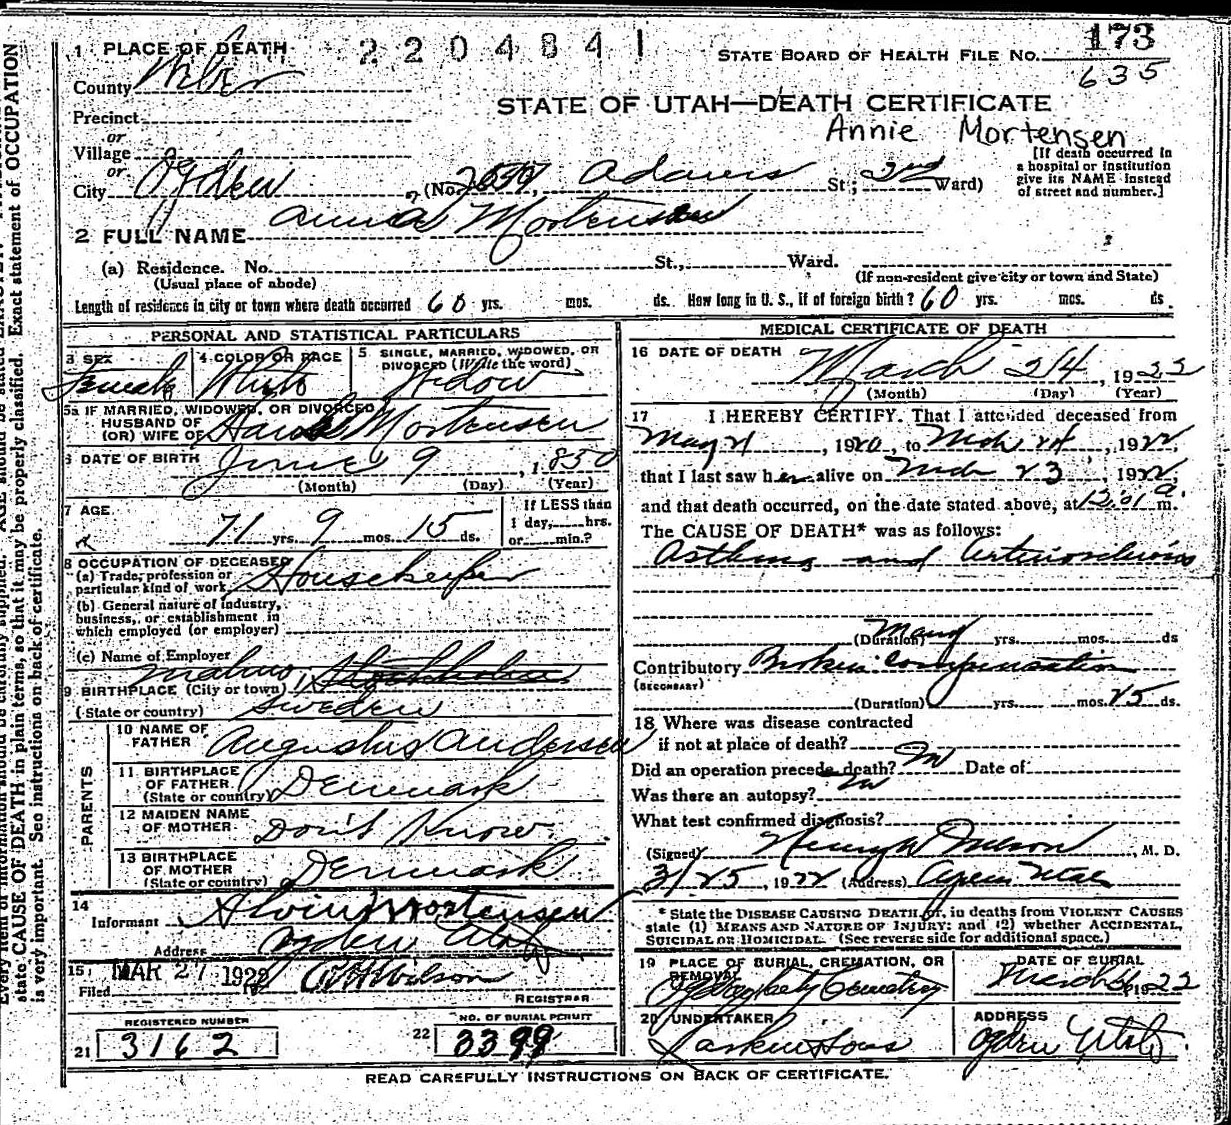 1 PLACE OF DEATH 2204841 STATE BOARD OF HEALTH FILE NO. 173
County Weber 635
STATE OF UTAH—DEATH CERTIFICATE
Precinct
or Annie Mortensen
Village
or
City Ogden (No. Adams St; 2nd Ward)
[If death occurred in a hospital or institution give its NAME instead of street and number.]
2 FULL NAME Mortensen
(a) Residence. No. St., Ward.
(Usual place of abode) (If non-resident give city or town and State)
Length of residence in city or town where death occurred 60 yrs. mos. ds. How long in U. S., if of foreign birth? 60 yrs. mos. ds.
PERSONAL AND STATISTICAL PARTICULARS
3 SEX Female
4 COLOR OR RACE White
5 SINGLE, MARRIED, WIDOWED, OR DIVORCED (Write the word) Widow
5a IF MARRIED, WIDOWED, OR DIVORCED
HUSBAND OF
(OR) WIFE OF Mortensen
6 DATE OF BIRTH June 9, 1850
(Month) (Day) (Year)
7 AGE 71 yrs. 9 mos. 15 ds.
If LESS than
1 day, hrs.
or min.?
8 OCCUPATION OF DECEASED
(a) Trade, profession or
particular kind of work Housekeeper
(b) General nature of industry,
business, or establishment in
which employed (or employer)
(c) Name of Employer
Malmo
9 BIRTHPLACE (City or town) Stockholm
(State or country) Sweden
PARENTS
10 NAME OF
FATHER Augustus Andersen
11 BIRTHPLACE
OF FATHER.
(State or country) Denmark
12 MAIDEN NAME
OF MOTHER Don't Know
13 BIRTHPLACE
OF MOTHER
(State or country) Denmark
14
Informant Alvin Mortensen
Address Ogden Utah
15 Filed MAR 27 1922 Wilson
REGISTRAR
REGISTERED NUMBER
21 3162
NO. OF BURIAL PERMIT
22 3399
MEDICAL CERTIFICATE OF DEATH
16 DATE OF DEATH March 24, 1922
(Month) (Day) (Year)
17 I HEREBY CERTIFY. That I attended deceased from
May 21, 1920, to Mch 24, 1922,
that I last saw her alive on Mch 23, 1922,
and that death occurred, on the date stated above, at 12.01 a. m.
The CAUSE OF DEATH* was as follows:
Asthma and Arteriosclerosis
(Duration) Many yrs. mos. ds
Contributory Broken Compensation
(SECONDARY)
(Duration) yrs. mos. 25 ds.
18 Where was disease contracted
if not at place of death?
Did an operation precede death? No Date of
Was there an autopsy? No
What test confirmed diagnosis?
(Signed) Henry W Nelson, M. D.
3/25, 1922 (Address) Ogden Utah
* State the DISEASE CAUSING DEATH, or, in deaths from VIOLENT CAUSES
state (1) MEANS AND NATURE OF INJURY; and (2) whether ACCIDENTAL,
SUICIDAL OR HOMICIDAL. (See reverse side for additional space.)
19 PLACE OF BURIAL, CREMATION, OR
REMOVAL
Ogden City Cemetery
DATE OF BURIAL
March 1922
20 UNDERTAKER
Larkin & Sons
ADDRESS
Ogden Utah
READ CAREFULLY INSTRUCTIONS ON BACK OF CERTIFICATE.
state CAUSE OF DEATH in plain terms, so that it may be properly classified. Exact statement of OCCUPATION
is very important. See instructions on back of certificate.